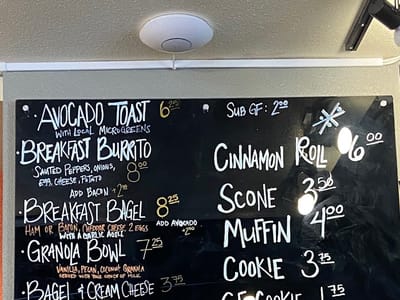 · AVOCADO TOAST 6.25
WITH LOCAL MICROGREENS
· BREAKFAST BURRITO
SAUTEED PEPPERS, ONIONS, 8.00
EGG, CHEESE, POTATO
ADD BACON + 2.00
· BREAKFAST BAGEL 8.25
HAM OR BACON, CHEDDAR CHEESE 2 EGGS ADD AVOCADO
WITH A GARLIC AIOLI +2.00
· GRANOLA BOWL 7.25
VANILLA, PECAN, COCONUT GRANOLA
SERVED WITH YOUR CHOICE OF MILK
· BAGEL & CREAM CHEESE 3.75
SUB GF: 2.00
CINNAMON ROLL 6.00
SCONE 3.50
MUFFIN 4.00
COOKIE 3.75
GF COOKIE